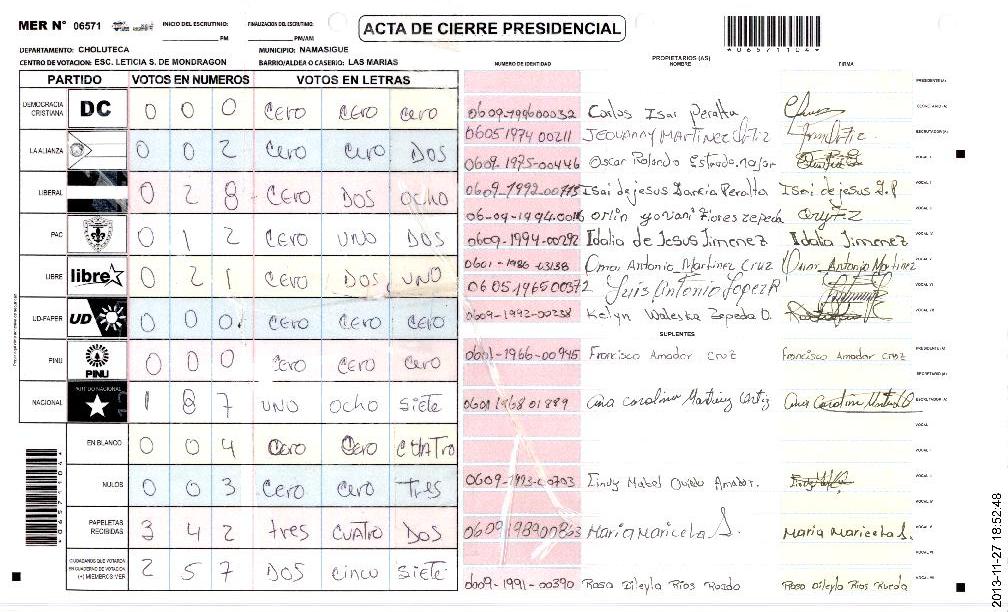 MER N° 06571 INICIO DEL ESCRUTINIO: PM FINALIZACION DEL ESCRUTINIO: PM/AM
ACTA DE CIERRE PRESIDENCIAL
*06571104*
DEPARTAMENTO: CHOLUTECA MUNICIPIO: NAMASIGUE
CENTRO DE VOTACION: ESC. LETICIA S. DE MONDRAGON BARRIO/ALDEA O CASERIO: LAS MARIAS
PARTIDO VOTOS EN NUMEROS VOTOS EN LETRAS
DEMOCRACIA CRISTIANA DC 0 0 0 CERO CERO CERO
LA ALIANZA 0 0 2 CERO CERO DOS
LIBERAL 0 2 8 CERO DOS OCHO
PAC 0 1 2 CERO UNO DOS
LIBRE libre 0 2 1 CERO DOS UNO
UD-FAPER UD 0 0 0. CERO CERO CERO
PINU PINU 0 0 0 CERO CERO CERO
NACIONAL PARTIDO NACIONAL 1 8 7 UNO OCHO SIETE
EN BLANCO 0 0 4 CERO CERO CUATRO
NULOS 0 0 3 CERO CERO TRES
PAPELETAS RECIBIDAS 3 4 2 TRES CUATRO DOS
CIUDADANOS QUE VOTARON EN CUADERNO DE VOTACION (+) MIEMBROS MER 2 5 7 DOS CINCO SIETE
NUMERO DE IDENTIDAD PROPIETARIOS (AS) NOMBRE FIRMA
PRESIDENTE(A)
Carlos Isai Peralta SECRETARIO(A)
0605 1974 00211 JEOVANNY MARTINEZ ORTIZ ESCRUTADOR(A)
0609-1975-00446 Oscar Rolando Estrada major VOCAL I
Isai de jesus Garcia Peralta Isai de jesus G.P
orlin yovani Flores zepeda
0609-1994-00292 Idalia de Jesus Jimenez Idalia Jimenez
0601-1986-03138 Omar Antonio Martinez Cruz Omar Antonio Martinez
0605196500372 Luis Antonio Lopez R
0609-1992-00238 Kelyn Waleska Zepeda O.
SUPLENTES
0601-1966-00945 Francisco Amador cruz Francisco Amador cruz PRESIDENTE(A)
SECRETARIO(A)
0601 1968 01889 Ana carolina Martinez Ortiz ESCRUTADOR(A)
VOCAL
0609-1993-00703 Lindy Mabel Oviedo Amador.
Maria Maricela S. Maria Maricela S.
0609-1991-00390 Rosa Dileyla Rios Rueda Rosa Dileyla Rios Rueda
*06571104*
2013-11-27 18:52:48